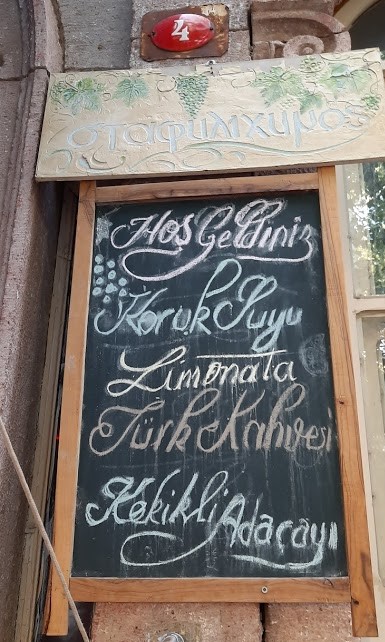 4
σταφυλιχυμος
Hoş Geldiniz
Koruk Suyu
Limonata
Türk Kahvesi
Kekikli Adaçayı